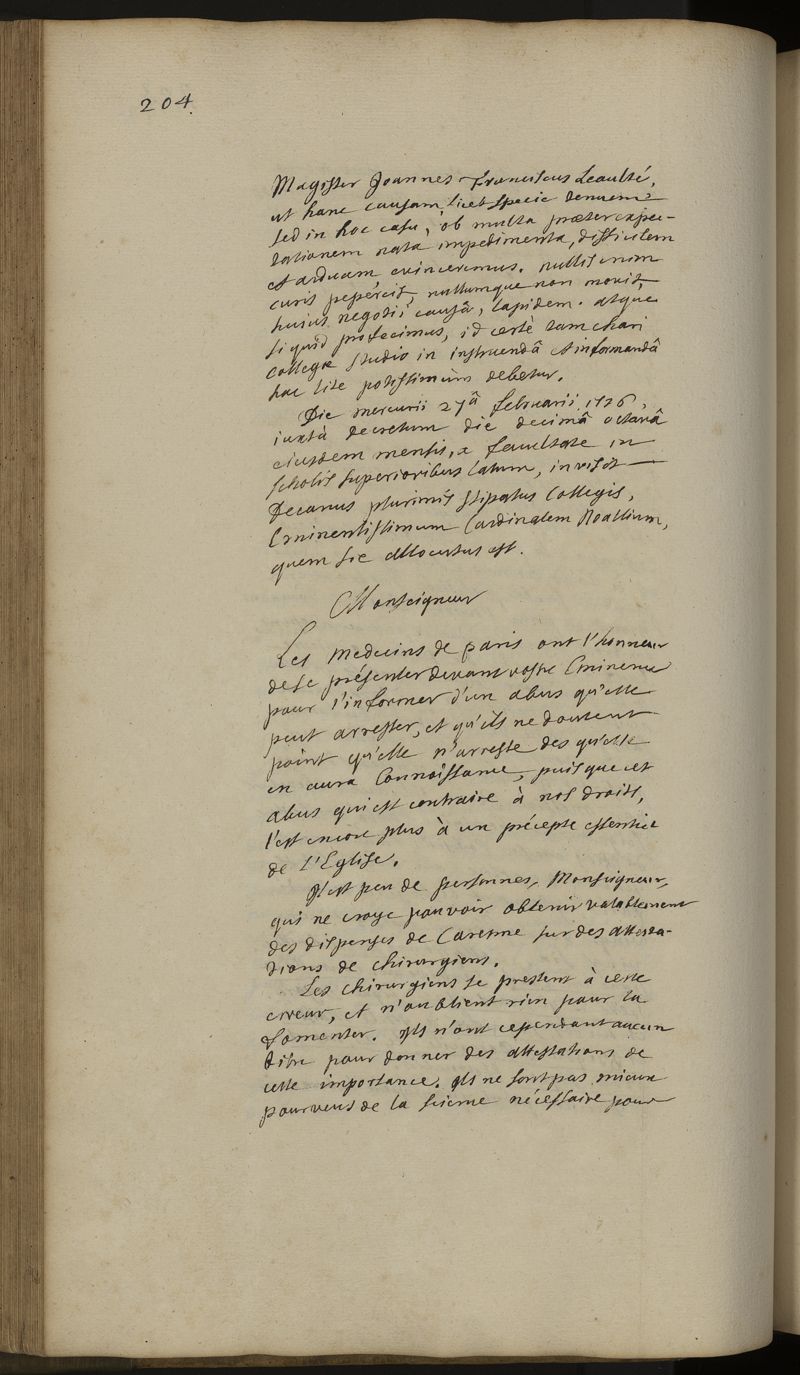 204.
Magister Joannes Franciscus Leaulté,
ut hanc causam, licet specie tenuem
sed in hoc casu, ob multa præter expec-
tationem nata impedimenta, difficilem
et arduam evinceremus. nullis enim
curis pepercit, nullumque non movit,
huius negotii causâ, lapidem. atque
si quid profecimus, id certè tam chari
collegæ studio in instruendâ et informandâ
hac lite potissimùm debetur.
Die mercurii 27â februarii 1726,
iuxtà decretum die decimâ octavâ
eiusdem mensis, a facultate in
scholis superioribus latum, invisit
Decanus plurimis stipatus Collegis,
Eminentissimum Cardinalem Noallium,
quem sic allocutus est.
Monseigneur
Les Medecins de paris ont l'honneur
de se présenter devant vostre Eminence
pour l'informer d'un abus qu'elle
peut arrester, et qu'ils ne doutent
point qu'elle n'arreste des qu'elle
en aura Connoissance, puisque cet
abus qui est contraire à nos droits,
l'est encore plus à un précepte essentiel
de l'Eglise.
Il est peu de personnes, Monseigneur,
qui ne croye pouvoir obtenir valablement
des dispenses de Caresme sur des attesta-
tions de chirurgiens.
Les chirurgiens se prestent à cette
erreur, et n'oublient rien pour la
fomenter. Ils n'ont cependant aucun
titre pour donner des attestations de
cette importance. Ils ne sont pas mieux
pourveus de la science nécessaire pour